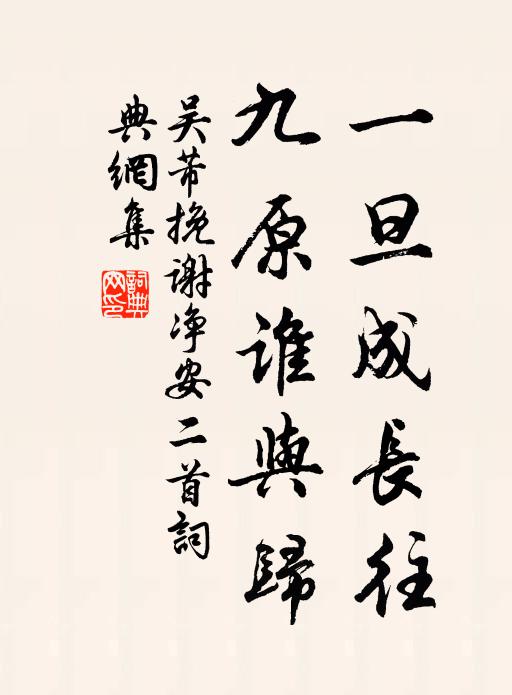 一旦成長往
九原誰與歸
吴芾挽谢净安二首詞
典網集
詞典网印